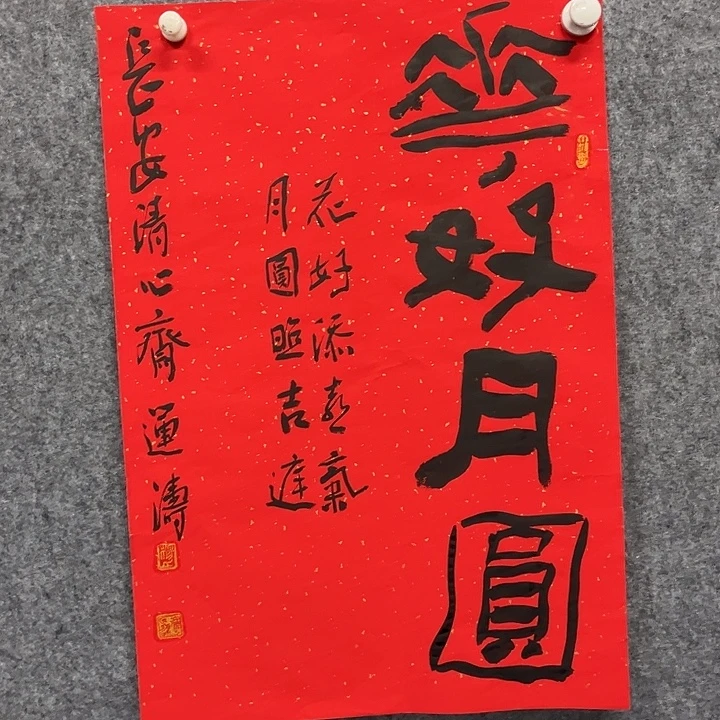 華好月圓
花好添喜氣
月圓照吉庭
長安清心齋運濤